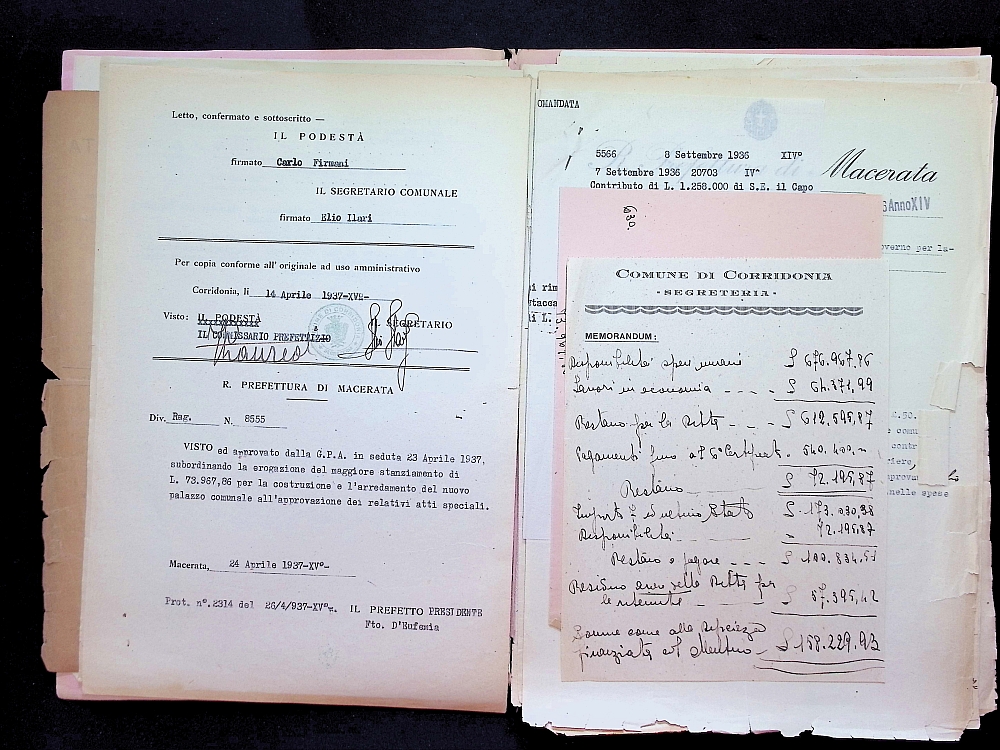 Letto, confermato e sottoscritto —
IL PODESTÀ
firmato Carlo Firmani
IL SEGRETARIO COMUNALE
firmato Elio Ilari
Per copia conforme all'originale ad uso amministrativo
Corridonia, li 14 Aprile 1937-XVº-
Visto: IL PODESTÀ
IL SEGRETARIO
IL COMMISSARIO PREFETTIZIO
R. PREFETTURA DI MACERATA
Div. Rag. N. 8555
VISTO ed approvato dalla G.P.A. in seduta 23 Aprile 1937,
subordinando la erogazione del maggiore stanziamento di
L. 73.967,86 per la costruzione e l'arredamento del nuovo
palazzo comunale all'approvazione dei relativi atti speciali.
Macerata, 24 Aprile 1937-XVº-
Prot. nº.2314 del 26/4/937-XVº-. IL PREFETTO PRESIDENTE
Fto. D'Eufemia
OMANDATA
5566 8 Settembre 1936 XIVº
Macerata
7 Settembre 1936 20703 IVº
Contributo di L. 1.258.000 di S.E. il Capo
AnnoXIV
overno per la-
630.
COMUNE DI CORRIDONIA
- SEGRETERIA -
MEMORANDUM:
Disponibilità £ 676.967,86
Lavori in economia - - - £ 64.371,99
Restano per la Ditta - - - £ 612.595,87
Pagamenti fino al 6º Certificato. 540.400,=
Restano £ 72.195,87
Importo 7º ed ultimo Stato £. 173.030,38
Disponibilità " 72.195,87
Restano a pagare - - - £ 100.834,51
Residuo avere della Ditta per
le ritenute £ 57.395,42
Somme come alla
£ 158.229.93
nelle spese